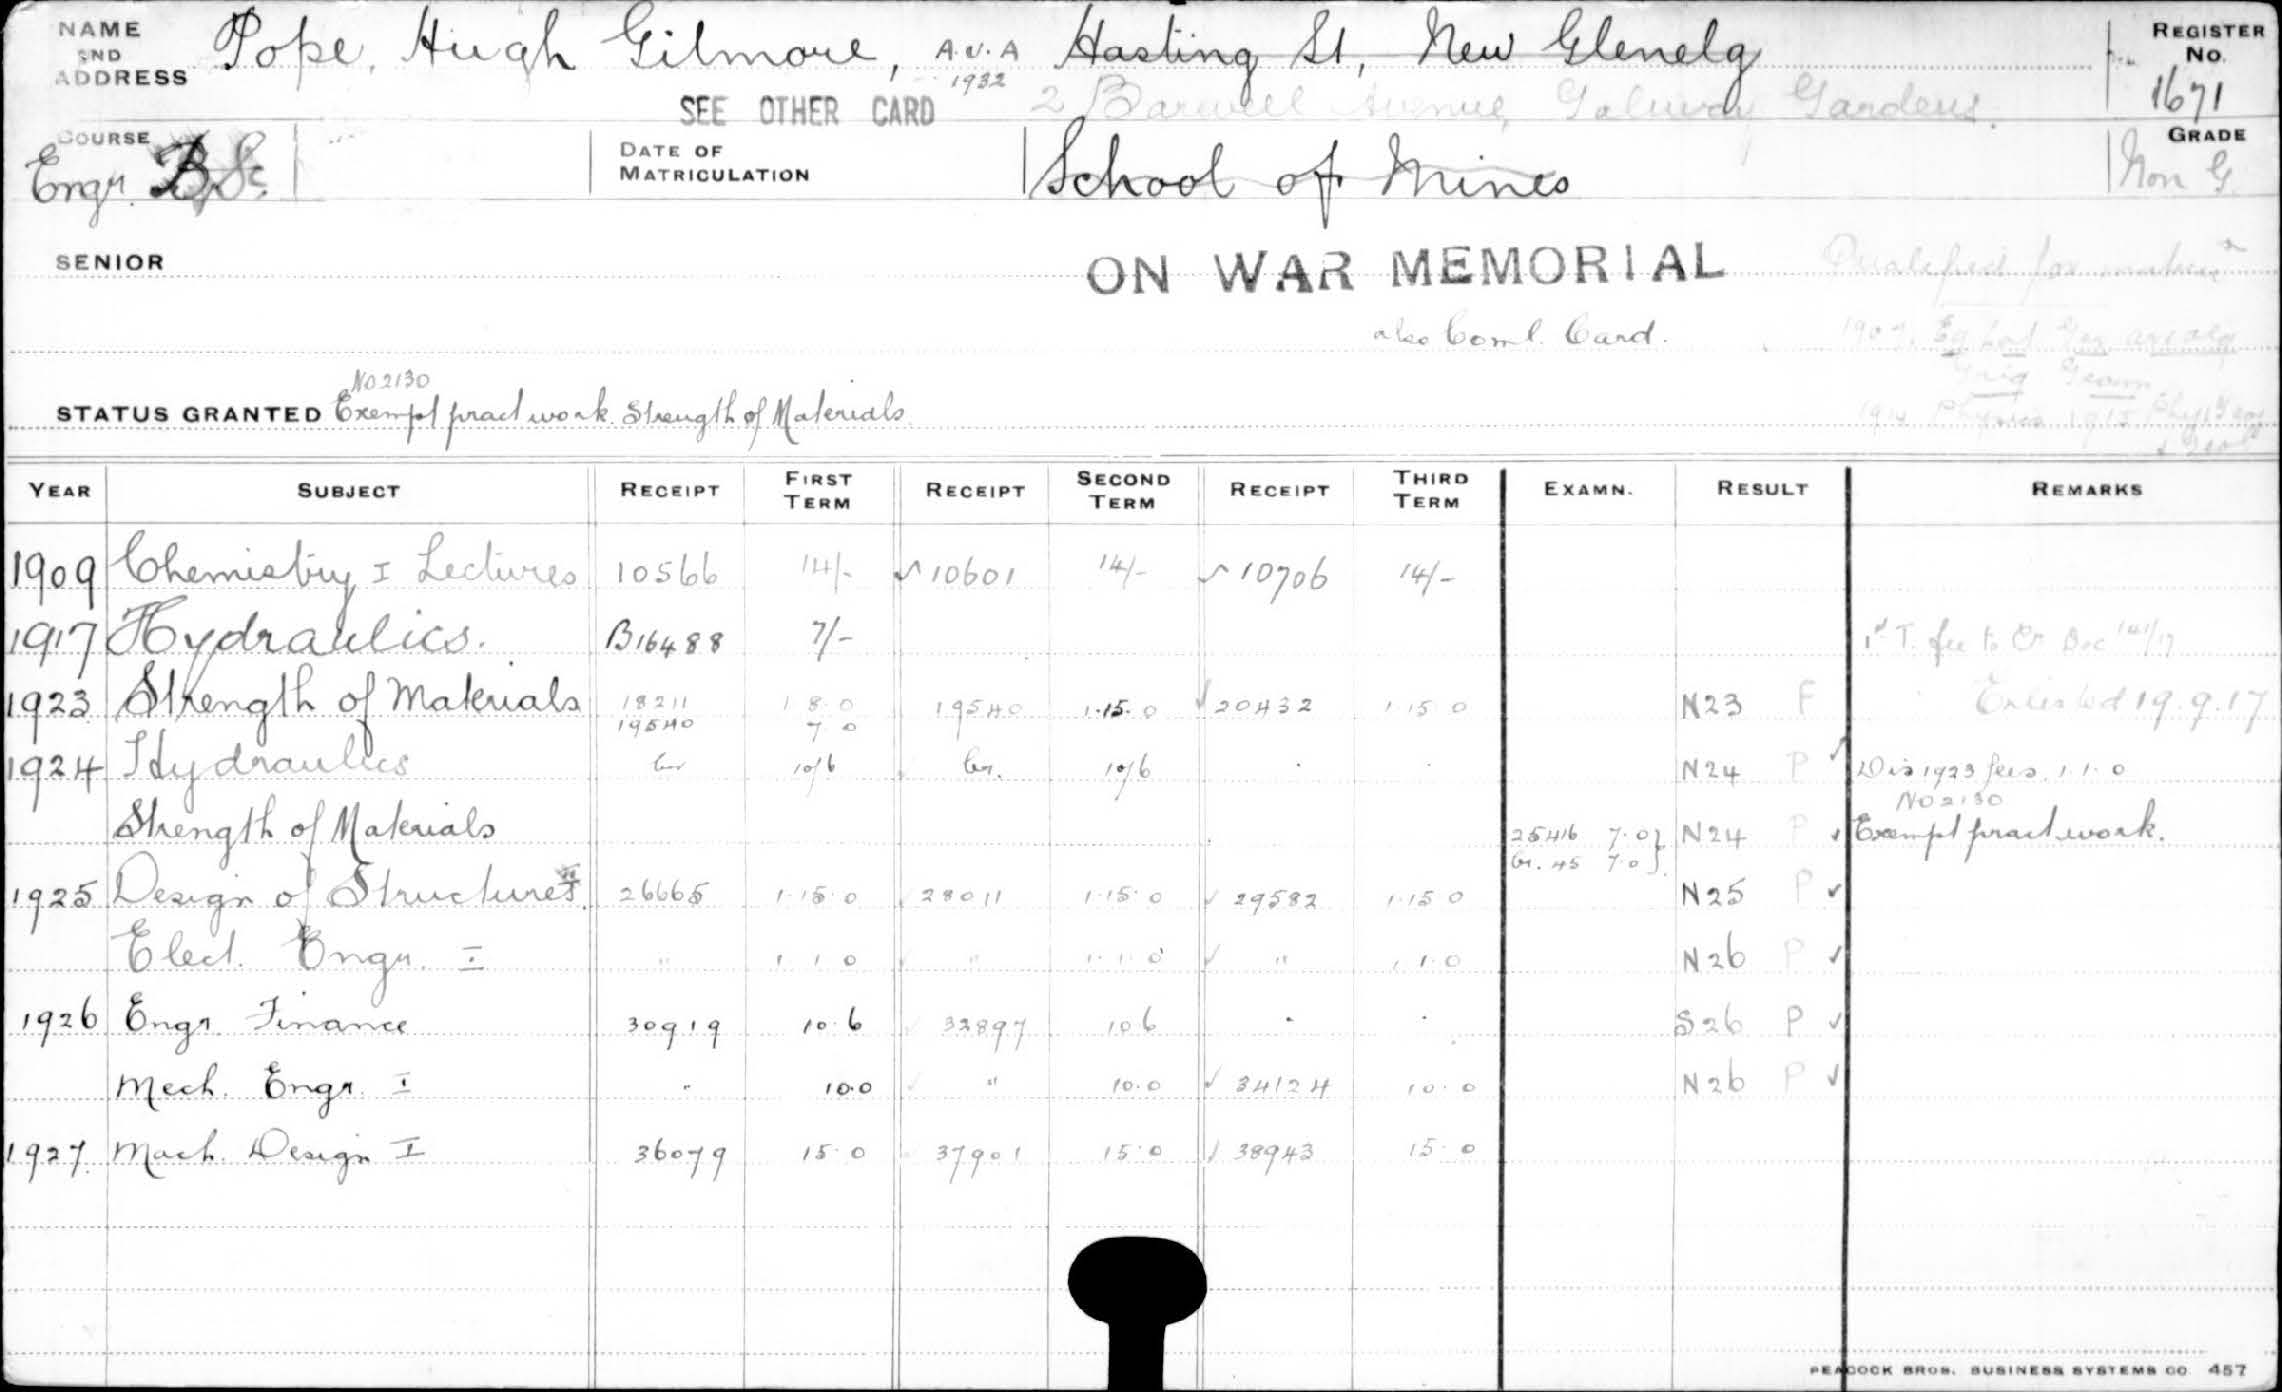 NAME AND ADDRESS Pope, Hugh Gilmore, A.U.A 1932 Hasting St, New Glenelg
REGISTER No. 1671
SEE OTHER CARD 2 Barwell Avenue, Galway Gardens.
COURSE Engr. B.Sc. DATE OF MATRICULATION School of Mines GRADE Non G.
SENIOR ON WAR MEMORIAL Qualified for
also Coml. Card. 1907
Trig Geom
No 2130
STATUS GRANTED Exempt pract work. Strength of Materials 1914 Physics 1915
YEAR SUBJECT RECEIPT FIRST TERM RECEIPT SECOND TERM RECEIPT THIRD TERM EXAMN. RESULT REMARKS
1909 Chemistry I Lectures 10566 14/- ✓ 10601 14/- ✓ 10706 14/-
1917 Hydraulics. B16488 7/- 1st T. fee to Cr Dec
1923 Strength of Materials 18211 1 8 0 19540 1.15.0 ✓ 20432 1 15 0 N23 F Enlisted 19.9.17
19540 7.0
1924 Hydraulics Cr 10/6 Cr. 10/6 N24 P ✓ Dis 1923 fees 1.1.0
No 2130
Strength of Materials 25416 7.0} N24 P ✓ Exempt pract work.
Cr. 45 7.0}
1925 Design of Structures II 26665 1.15.0 ✓ 28011 1.15.0 ✓ 29582 1.15 0 N25 P ✓
Elect. Engr. I " 1 1 0 ✓ " 1.1.0 ✓ " 1.1.0 N26 P ✓
1926 Engr. Finance 30919 10.6 32897 10 6 S26 P ✓
Mech. Engr. I " 10.0 ✓ " 10.0 ✓ 34124 10.0 N26 P ✓
1927. Mach. Design I 36079 15.0 37901 15.0 ✓ 38943 15.0
PEACOCK BROS. BUSINESS SYSTEMS CO. 457